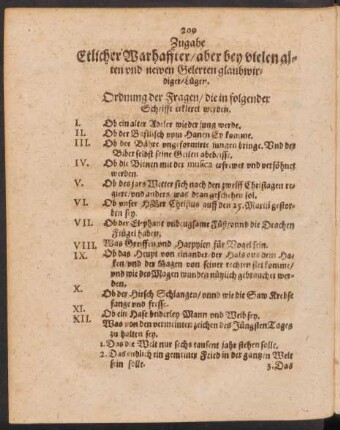 209
Zugabe
Etlicher Warhaffter / aber bey vielen al-
ten vnd newen Gelerten glaubwir-
diger / Lügen.
Ordnung der Fragen / die in folgender
Schrifft erkleret werden.
I. Ob ein alter Adeler wieder jung werde.
II. Ob der Basilisch vom Hanen Ey komme.
III. Ob der Bähr vngeformirte jungen bringe. Vnd der
Biber selbst seine Geilen abbeisse.
IV. Ob die Bienen mit der musica erfrewet vnd versöhnet
werden.
V. Ob des jars Wetter sich nach den zwelff Christagen re-
giere / vnd anders was dran geschehen sol.
VI. Ob vnser HERR Christus auff den 25. Martii gestor-
ben sey.
VII. Ob der Elephant vnbeugsame Füß / vnnd die Drachen
Flügel haben.
VIII. Was Greiffen vnd Harpyien für Vogel sein.
IX. Ob das Heupt von einander der Hals aus dem Ha-
cken vnd der Magen von seiner rechten stet komme /
vnd wie des Magen wunden nützlich gebrauchet wer-
den.
X. Ob der Hirsch Schlangen / vnnd wie die Saw Krebse
fange vnd fresse.
XI. Ob ein Hase beiderley Mann vnd Weib sey.
XII. Was von den vermeinten zeichen des Jüngsten Tages
zu halten sey.
1. Das die Welt nur sechs tausent jahr stehen solle.
2. Das endlich ein gemeiner Fried in der gantzen Welt
sein solle.
3. Das